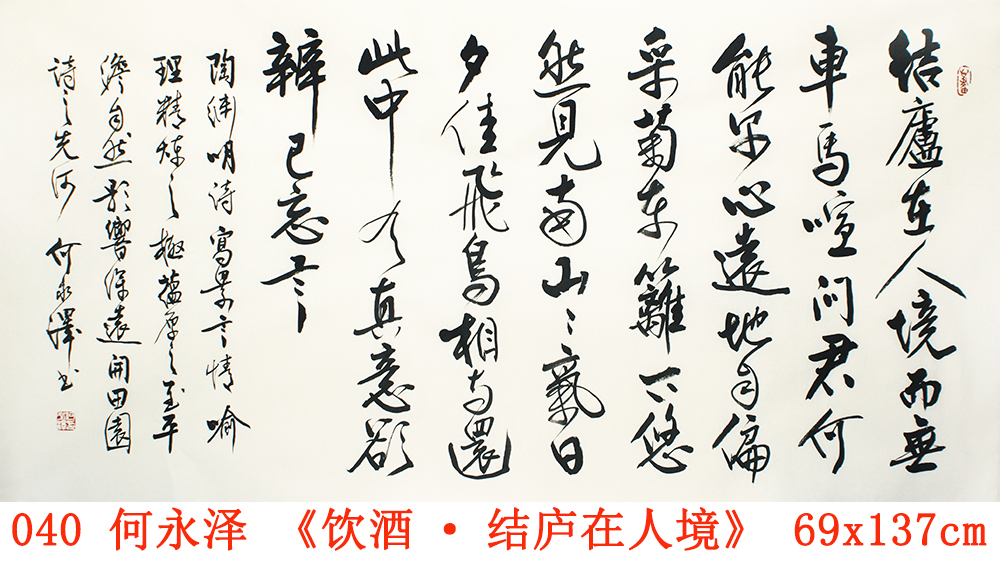 结廬在人境而無
車馬喧问君何
能尔心遠地自偏
采菊东籬下悠
然見南山山氣日
夕佳飛鳥相与還
此中有真意欲
辨已忘言
陶渊明诗寫景言情喻
理精煉之極蕴厚之至平
濟自然影響深遠開田園
诗之先河 何永澤书
040 何永泽 《饮酒·结庐在人境》 69x137cm